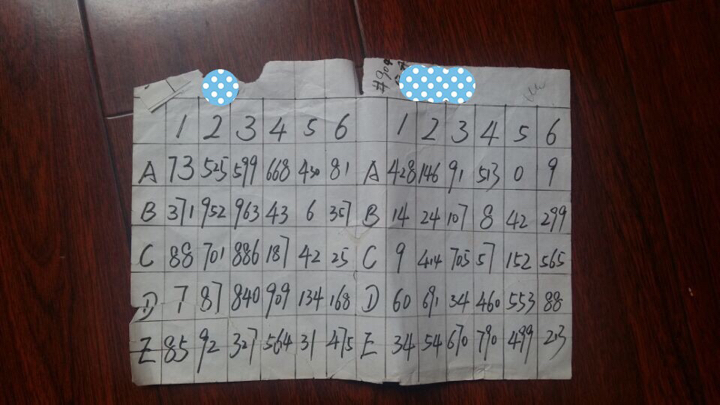 #904
1 2 3 4 5 6 1 2 3 4 5 6
A 73 525 599 668 450 81 A 428 146 91 513 0 9
B 371 952 963 43 6 357 B 14 24 107 8 42 299
C 88 701 886 187 42 25 C 9 414 705 57 152 565
D 7 87 840 909 134 168 D 60 691 34 460 553 88
E 85 92 327 564 31 475 E 34 54 670 790 499 213